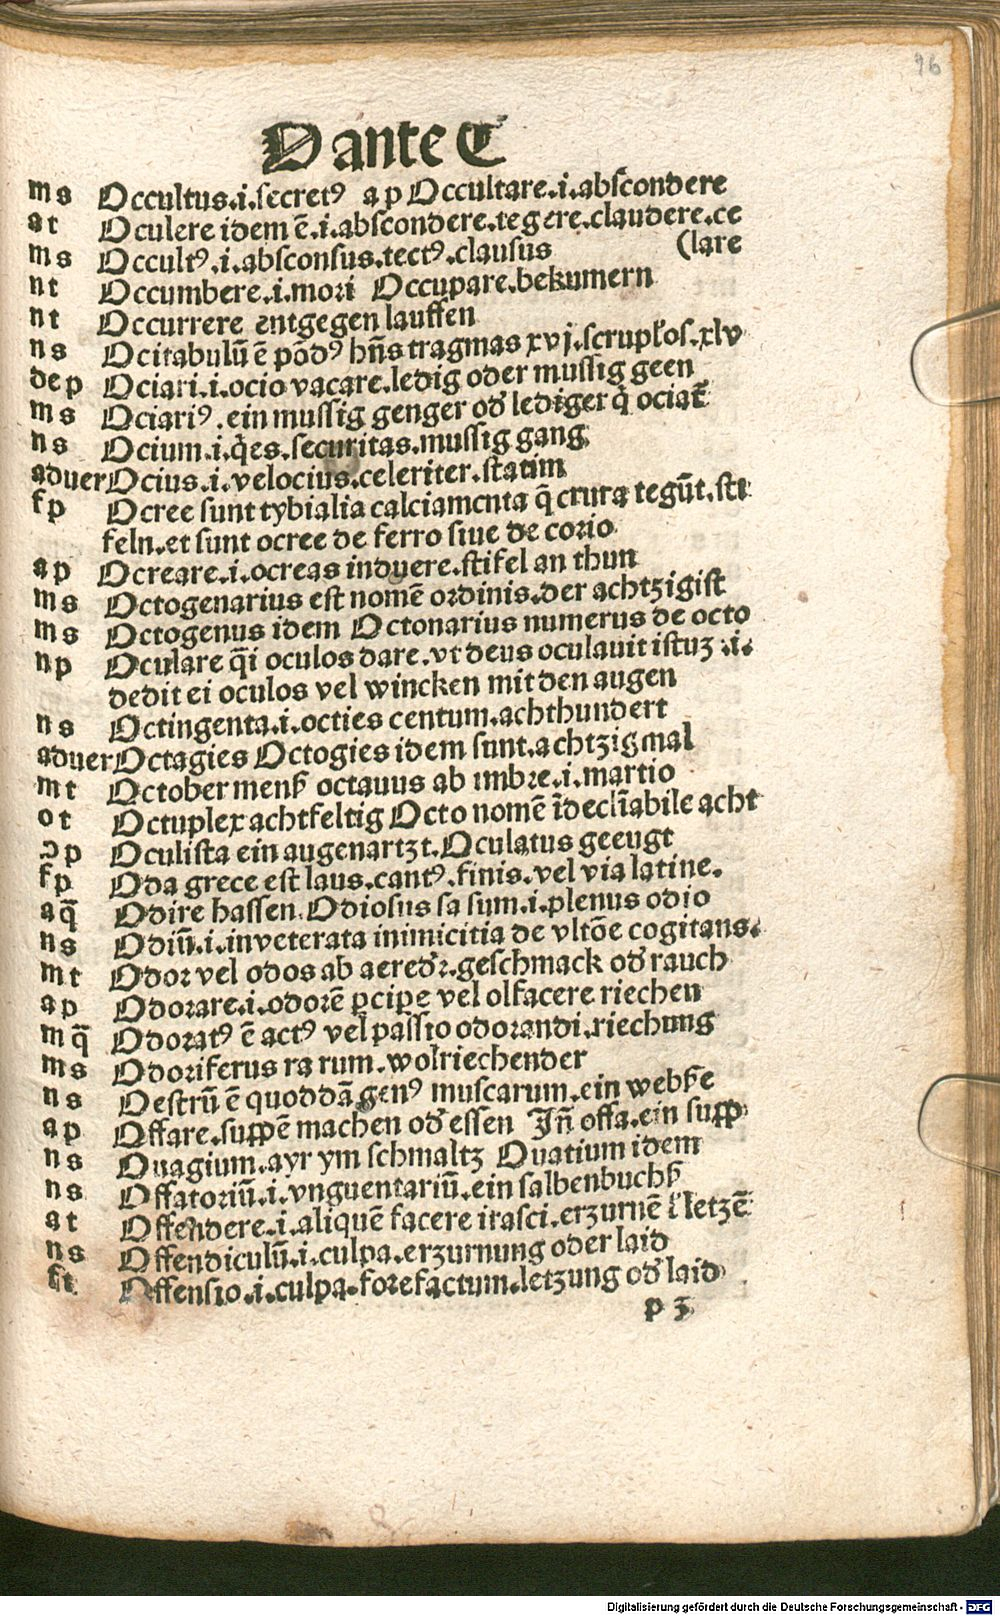 96
Dante C
ms Occultus.i.secretꝰ ap Occultare.i.abscondere
at Oculere idem ē.i.abscondere.tegere.claudere.ce
ms Occultꝰ.i.absconsus.tectꝰ.clausus (lare
nt Occumbere.i.mori Occupare.bekumern
nt Occurrere entgegen lauffen
ns Ocitabulū ē pōdꝰ hn̄s tragmas xvj.scrupłos.xlv
dep Ociari.i.ocio vacare.ledig oder mussig geen
ms Ociariꝰ.ein mussig genger od̓ lediger q̇ ociat̄
ns Ocium.i.q̇es.securitas.mussig gang
aduer Ocius.i.velocius.celeriter.statim
fp Ocree sunt tybialia calciamenta q̄ crura tegūt.sti
feln.et sunt ocree de ferro siue de corio
ap Ocreare.i.ocreas induere.stifel an thun
ms Octogenarius est nomē ordinis.der achtzigist
ms Octogenus idem Octonarius numerus de octo
np Oculare q̄i oculos dare.vt deus oculauit istuꝫ .i.
dedit ei oculos vel wincken mit den augen
ns Octingenta.i.octies centum.achthundert
aduer Octagies Octogies idem sunt.achtzig mal
mt October menß octauus ab imbre.i.martio
ot Octuplex achtfeltig Octo nomē īdecliabile acht
ɔp Oculista ein augenartzt.Oculatus geeugt
fp Oda grece est laus.cantꝰ.finis.vel via latine.
aq̄ Odire hassen.Odiosus sa sum.i.plenus odio
ns Odiū.i.inveterata inimicitia de vltōe cogitans.
mt Odor vel odos ab aere dꝛ.geschmack od̓ rauch
ap Odorare.i.odorē ꝑcipe vel olfacere riechen
mq̄ Odoratꝰ ē actꝰ vel passio odorandi.riechung
ms Odoriferus ra rum.wolriechender
ns Oestrū ē quoddā genꝰ muscarum.ein webße
ap Offare.suppē machen od̓ essen Jn̄ offa.ein supp
ns Ouagium.ayr ym schmaltz Ouatium idem
ns Offatoriū.i.vnguentariū.ein salbenbuchß
at Offendere.i.aliquē facere irasci.erzurnē ł letzē
ns Offendiculū.i.culpa.erzurnung oder laid
ft Offensio.i.culpa.forefactum.letzung od̓ laid
p 3
Digitalisierung gefördert durch die Deutsche Forschungsgemeinschaft - DFG